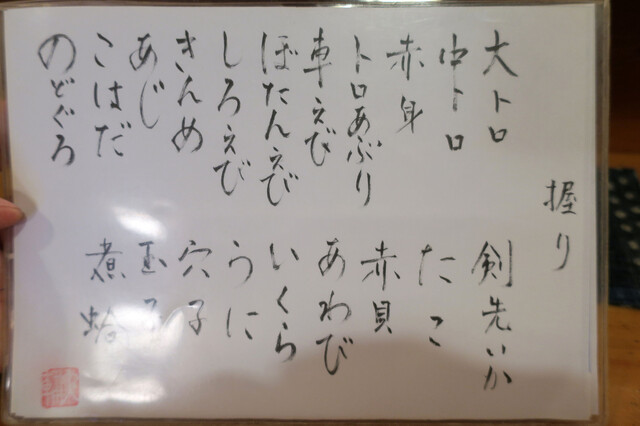 握り
大トロ
中トロ
赤身
トロあぶり
車えび
ぼたんえび
しろえび
きんめ
あじ
こはだ
のどぐろ
剣先いか
たこ
赤貝
あわび
いくら
うに
穴子
玉子
煮蛤